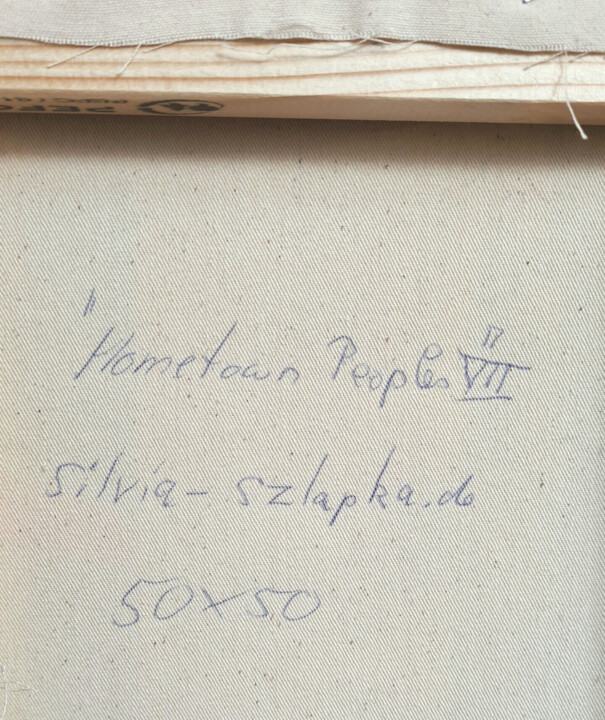 "Hometown Peoples VII"
silvia-szlapka.de
50x50